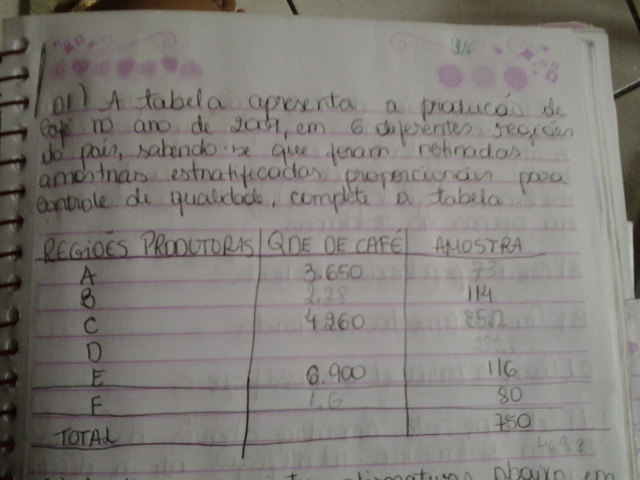 01) A tabela apresenta a producão de
café no ano de 2051, em 6 diferentes regiões
do país, sabendo-se que foram retiradas
amostras estratificadas proporcionais para
controle de qualidade, complete a tabela
REGIÕES PRODUTORAS QDE DE CAFÉ AMOSTRA
A 3.650 73
B 2.28 114
C 4.260
D
E 6.900 116
F 1.6 80
TOTAL 750
abaixo em